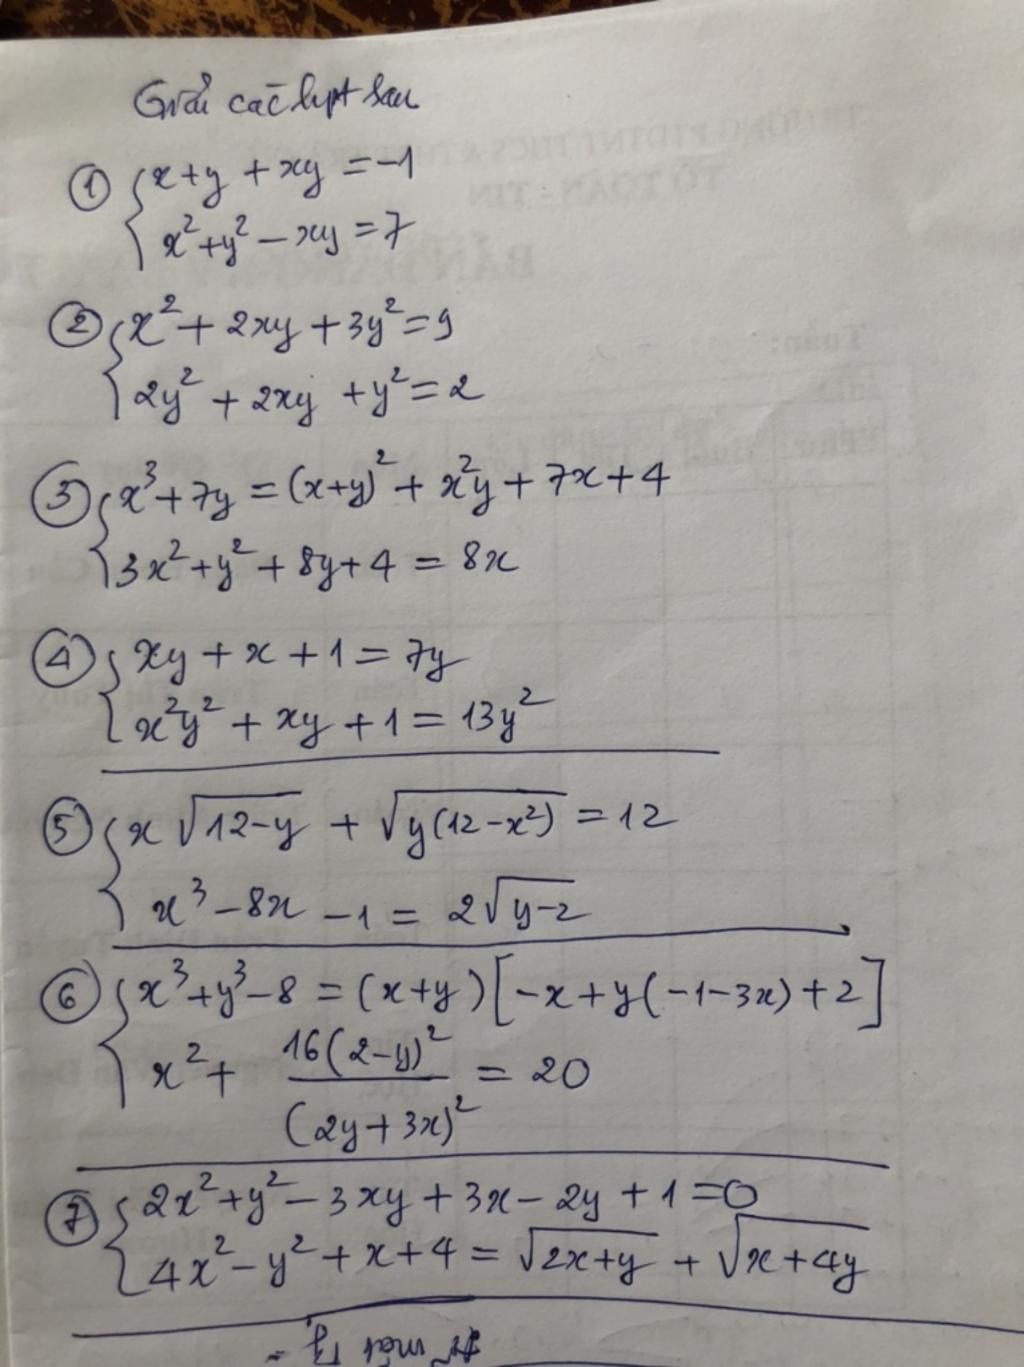 Giải các hpt sau
① { x+y+xy = -1
x²+y²-xy = 7
② { x²+2xy+3y² = 9
2y²+2xy+y² = 2
③ { x³+7y = (x+y)²+x²y+7x+4
3x²+y²+8y+4 = 8x
④ { xy+x+1 = 7y
x²y²+xy+1 = 13y²
⑤ { x√(12-y) + √(y(12-x²)) = 12
x³-8x-1 = 2√(y-2)
⑥ { x³+y³-8 = (x+y)[-x+y(-1-3x)+2]
x² + 16(2-y)²/(2y+3x)² = 20
⑦ { 2x²+y²-3xy+3x-2y+1 = 0
4x²-y²+x+4 = √(2x+y) + √(x+4y)